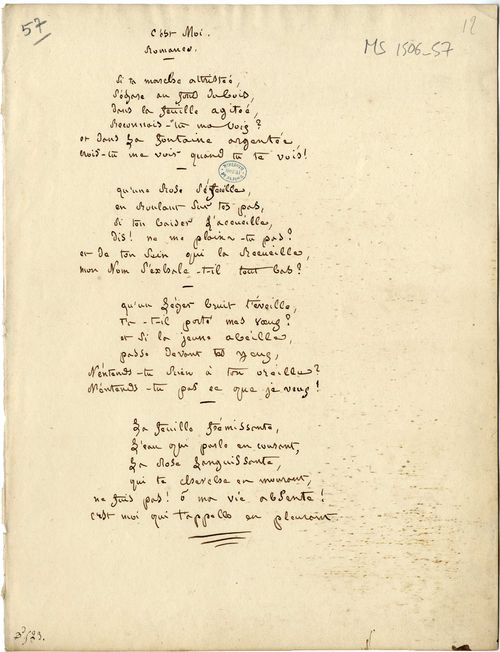 57
12
MS 1506_57
C'est Moi.
Romance.
Si ta marche attristée,
S'égare au fond du bois,
dans la feuille agitée,
Reconnais-tu ma Voix ?
et dans La fontaine argentée,
crois-tu me voir quand tu te vois !
qu'une Rose S'éffeuille,
en Roulant Sur tes pas,
Si ton baiser L'accueille,
dis ! ne me plains-tu pas ?
et de ton Sein qui la Recueille,
mon Nom S'exhale-t-il tout bas ?
qu'un Léger bruit t'éveille,
t'a-t-il porté mes vœux ?
et Si la jeune abeille,
passe devant tes yeux,
N'éntends-tu Rien à ton oreille ?
N'éntends-tu pas ce que je veux !
La feuille frémissante,
L'eau qui parle en courant,
La Rose Languissante,
qui te cherche en mourant,
ne fuis pas ! ô ma vie absente !
c'est moi qui t'appelle en pleurant